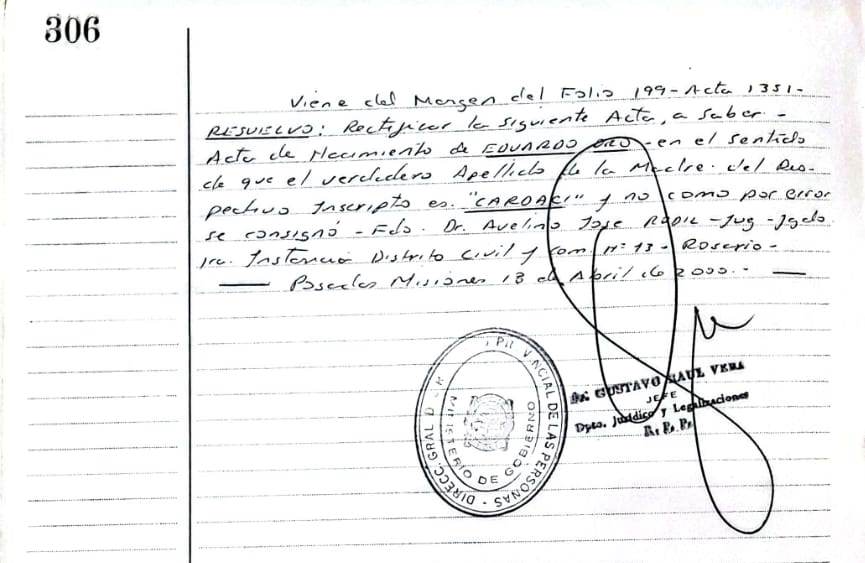 306
Viene del Margen del Folio 199 - Acta 1351 -
RESUELVO: Rectificar la siguiente Acta, a saber -
Acta de Nacimiento de EDUARDO ORO - en el sentido
de que el verdadero Apellido de la Madre del Res-
pectivo Inscripto es "CARDACI" y no como por error
se consignó - Fdo. Dr. Avelino Jose Rodil - Jug - Jgdo
1ra. Instancia Distrito Civil y Com. Nº 13 - Rosario -
Posadas Misiones 13 de Abril de 2000. -
DIRECC. GRAL VINCIAL DE LAS PERSONAS -
MINISTERIO DE GOBIERNO
Dr. GUSTAVO RAUL VERA
JEFE
Dpto. Jurídico y Legalizaciones
R. P. P.